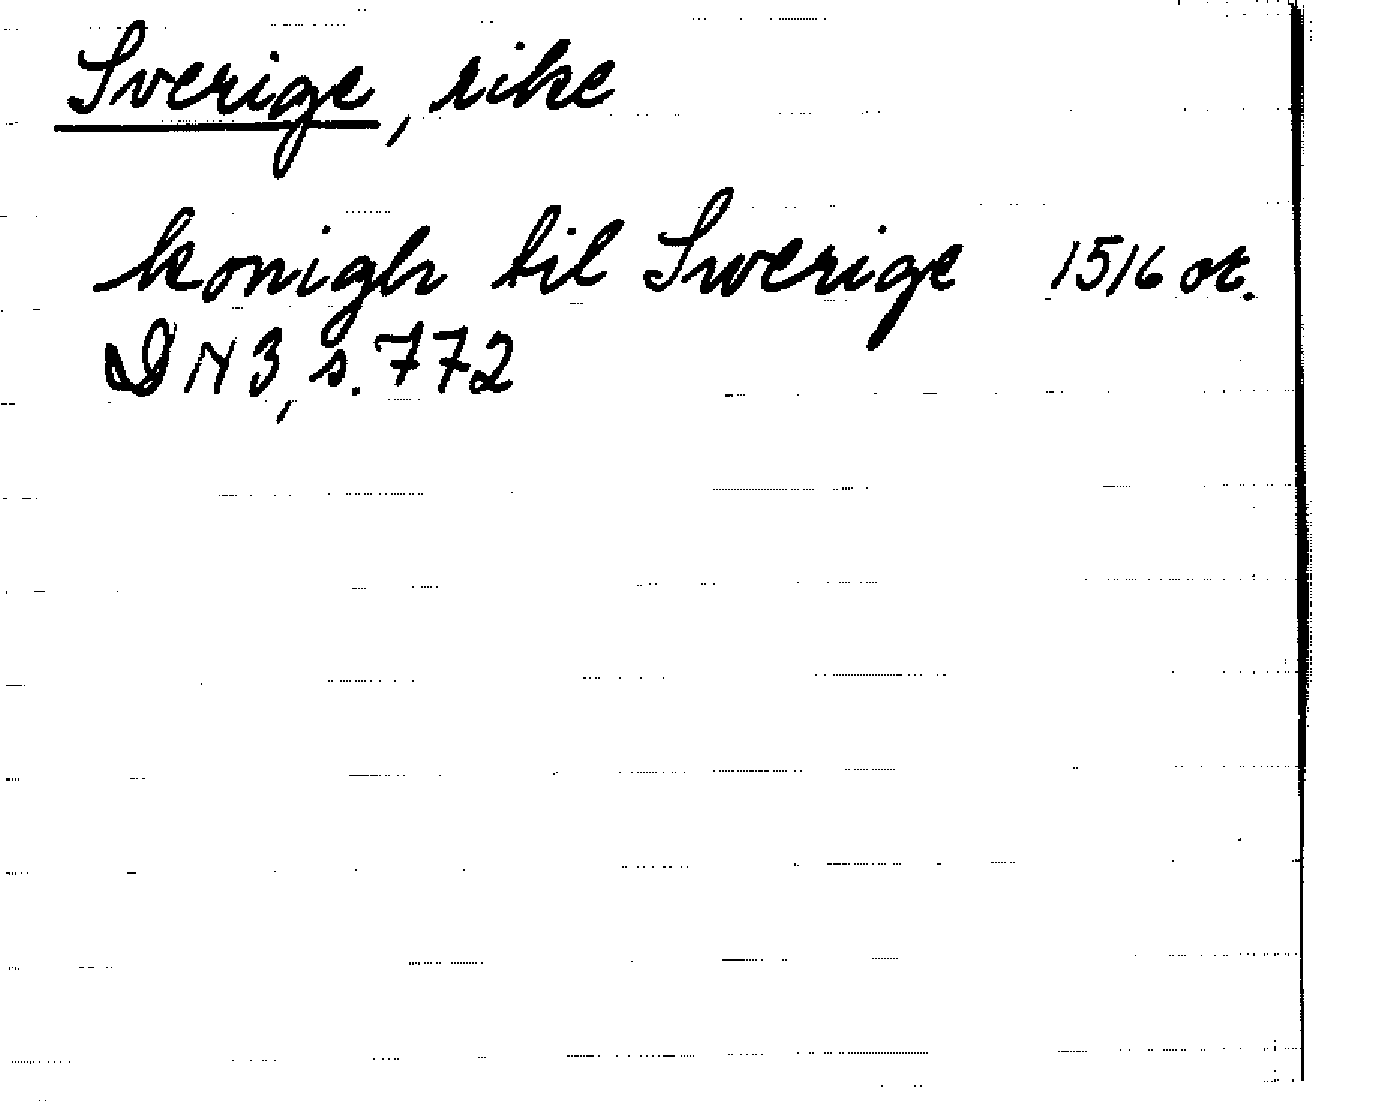 Sverige, rike
konigh til Swerige 1516 or.
DN 3, s. 772